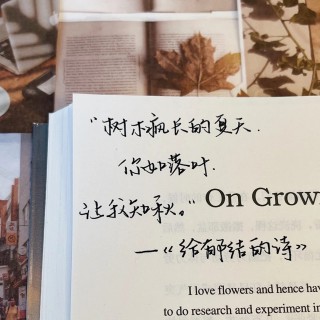 “树木疯长的夏天.
你如落叶.
让我知秋。”
On Grow
—《给郁结的诗》
I love flowers and hence hav
to do research and experiment in